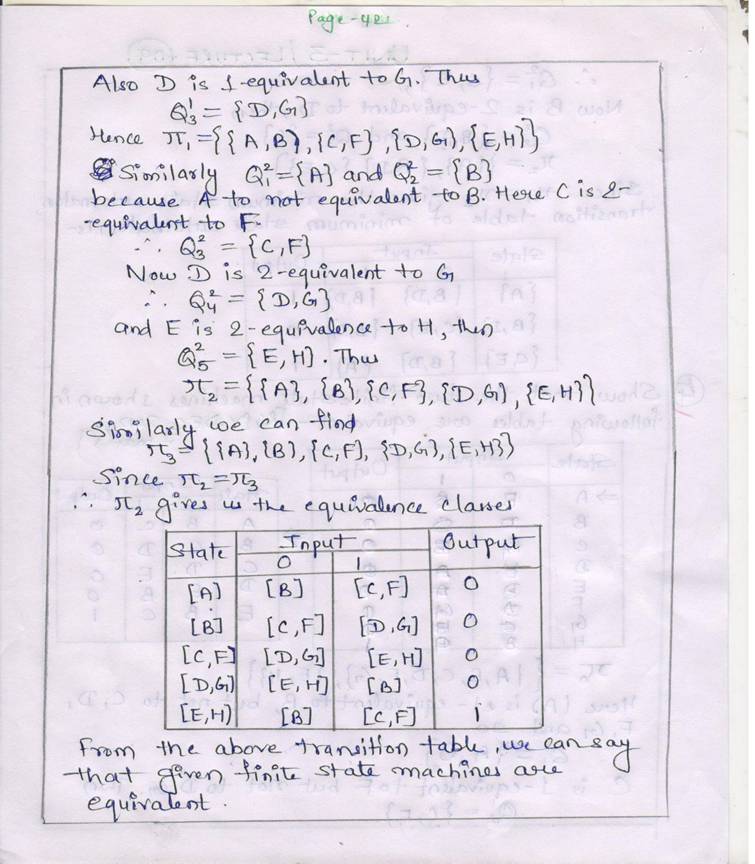 Page-421
Also D is 1-equivalent to G. Thus
Q₃¹ = {D,G}
Hence π₁={{A,B},{C,F},{D,G},{E,H}}
Similarly Q₁²={A} and Q₂²={B}
because A to not equivalent to B. Here C is 2-
-equivalent to F
∴ Q₃² = {C,F}
Now D is 2-equivalent to G
∴ Q₄² = {D,G}
and E is 2-equivalence to H, then
Q₅² = {E,H}. Thus
π₂={{A}, {B},{C,F}, {D,G}, {E,H}}
Similarly we can find
π₃={{A},{B},{C,F}, {D,G},{E,H}}
Since π₂=π₃
∴ π₂ gives us the equivalence classes
State Input Output
0 1
[A] [B] [C,F] 0
[B] [C,F] [D,G] 0
[C,F] [D,G] [E,H] 0
[D,G] [E,H] [B] 0
[E,H) [B] [C,F] 1
From the above transition table, we can say
that given finite state machines are
equivalent.